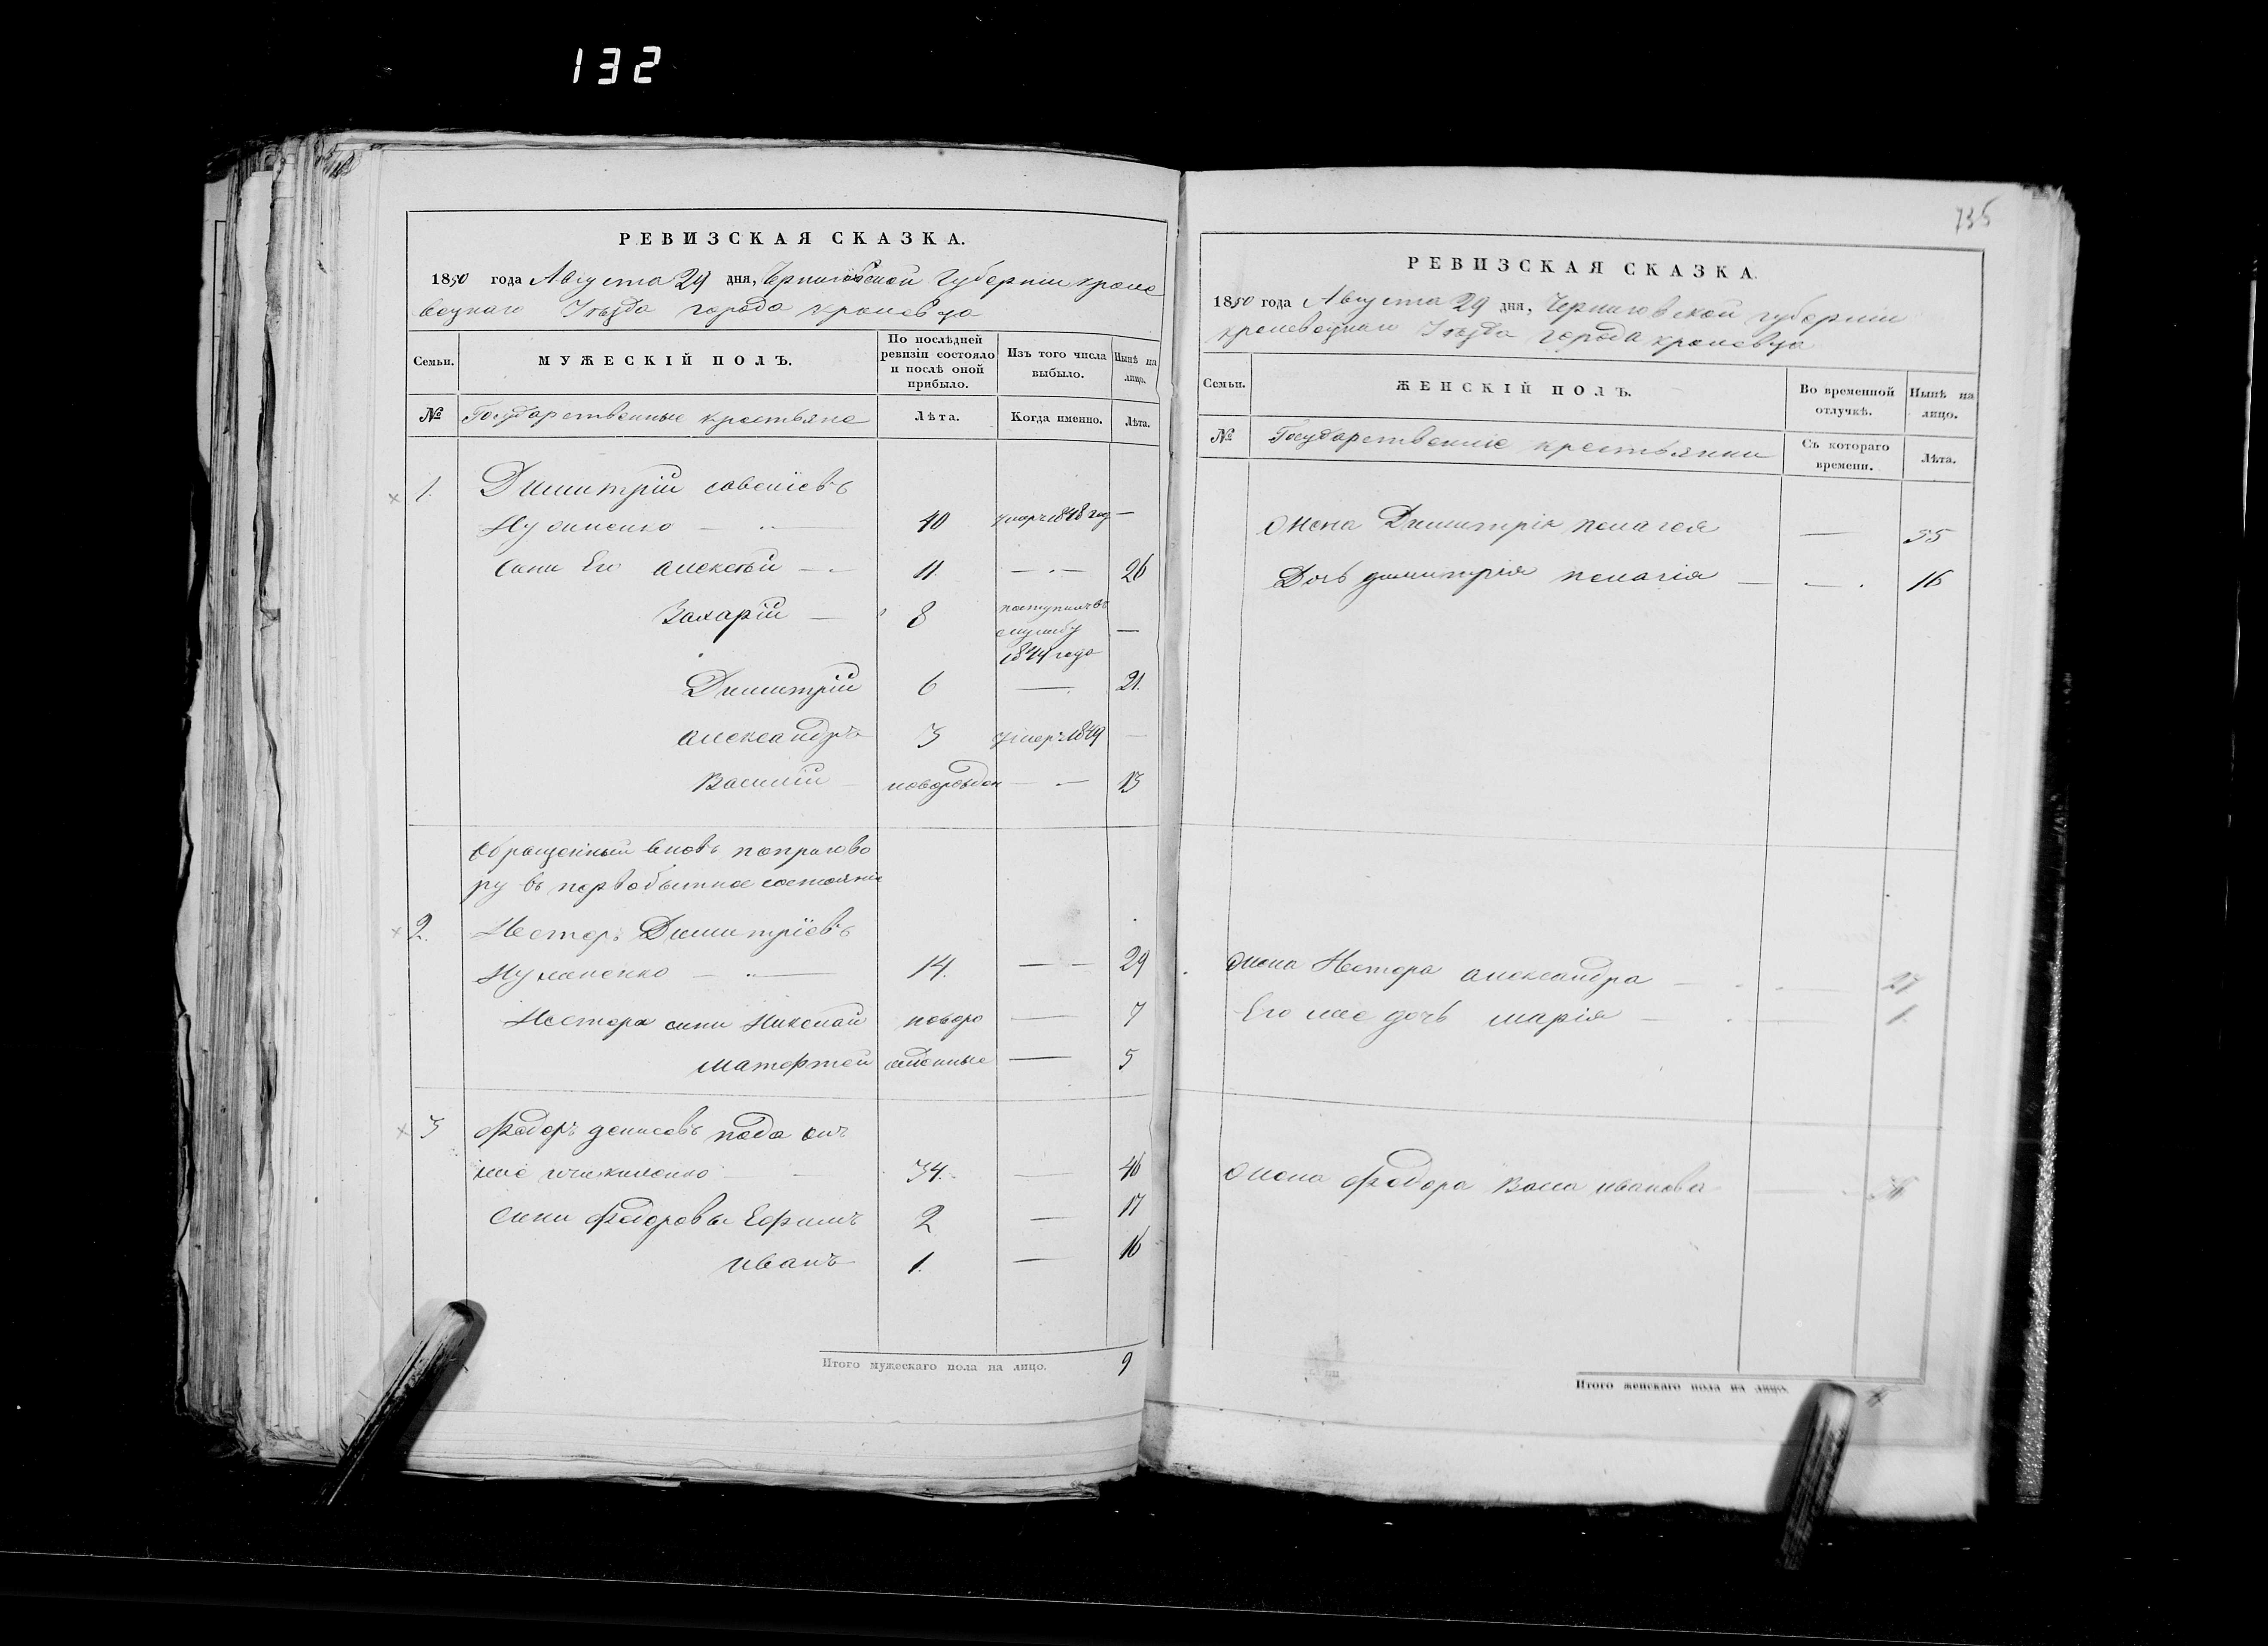 132
РЕВИЗСКАЯ СКАЗКА.
1850 года Августа 29 дня, Черниговской Губернии кроле
вецкаго Уезда города кролевца
Семьи.
МУЖЕСКІЙ ПОЛЪ.
По послѣдней ревизіи состояло и послѣ оной прибыло.
Изъ того числа выбыло.
Нынѣ на лицо.
№
Государственные крестьяне
Лѣта.
Когда именно.
Лѣта.
1. Димитрій савеліевъ
40 умеръ 1848 год —
сини Его алексѣй 11. — 26
Захарій — 8 поступилъ въ службу 1844 года —
Димитрій 6 — 21.
александръ 3 умеръ 1849 —
Василій — новорожден — 13
Обращенный вновь попригово
ру въ первобытное состояніе
2. Несторъ Димитріевъ
14. — 29
Нестора сини Николай новоро — 7
матфтей жденные — 5
3 Федоръ денисовъ
34. — 46
сини федоровы Ефимъ 2 — 17
иванъ 1. — 16
Итого мужескаго пола на лицо. 9
735
РЕВИЗСКАЯ СКАЗКА.
1850 года Августа 29 дня, Черниговской губерніи
кролевецкаго Уѣзда города кролевца
Семьи.
ЖЕНСКІЙ ПОЛЪ.
Во временной отлучкѣ.
Нынѣ на лицо.
№
Государственніе крестьянки
Съ котораго времени.
Лѣта.
жена Димитрія пелагея — 55
Дочь димитрія пелагія — 16
жена Нестора александра — 27
Его же дочь марія — 1.
жена федора Васса иванова —
Итого женскаго пола на лицо.